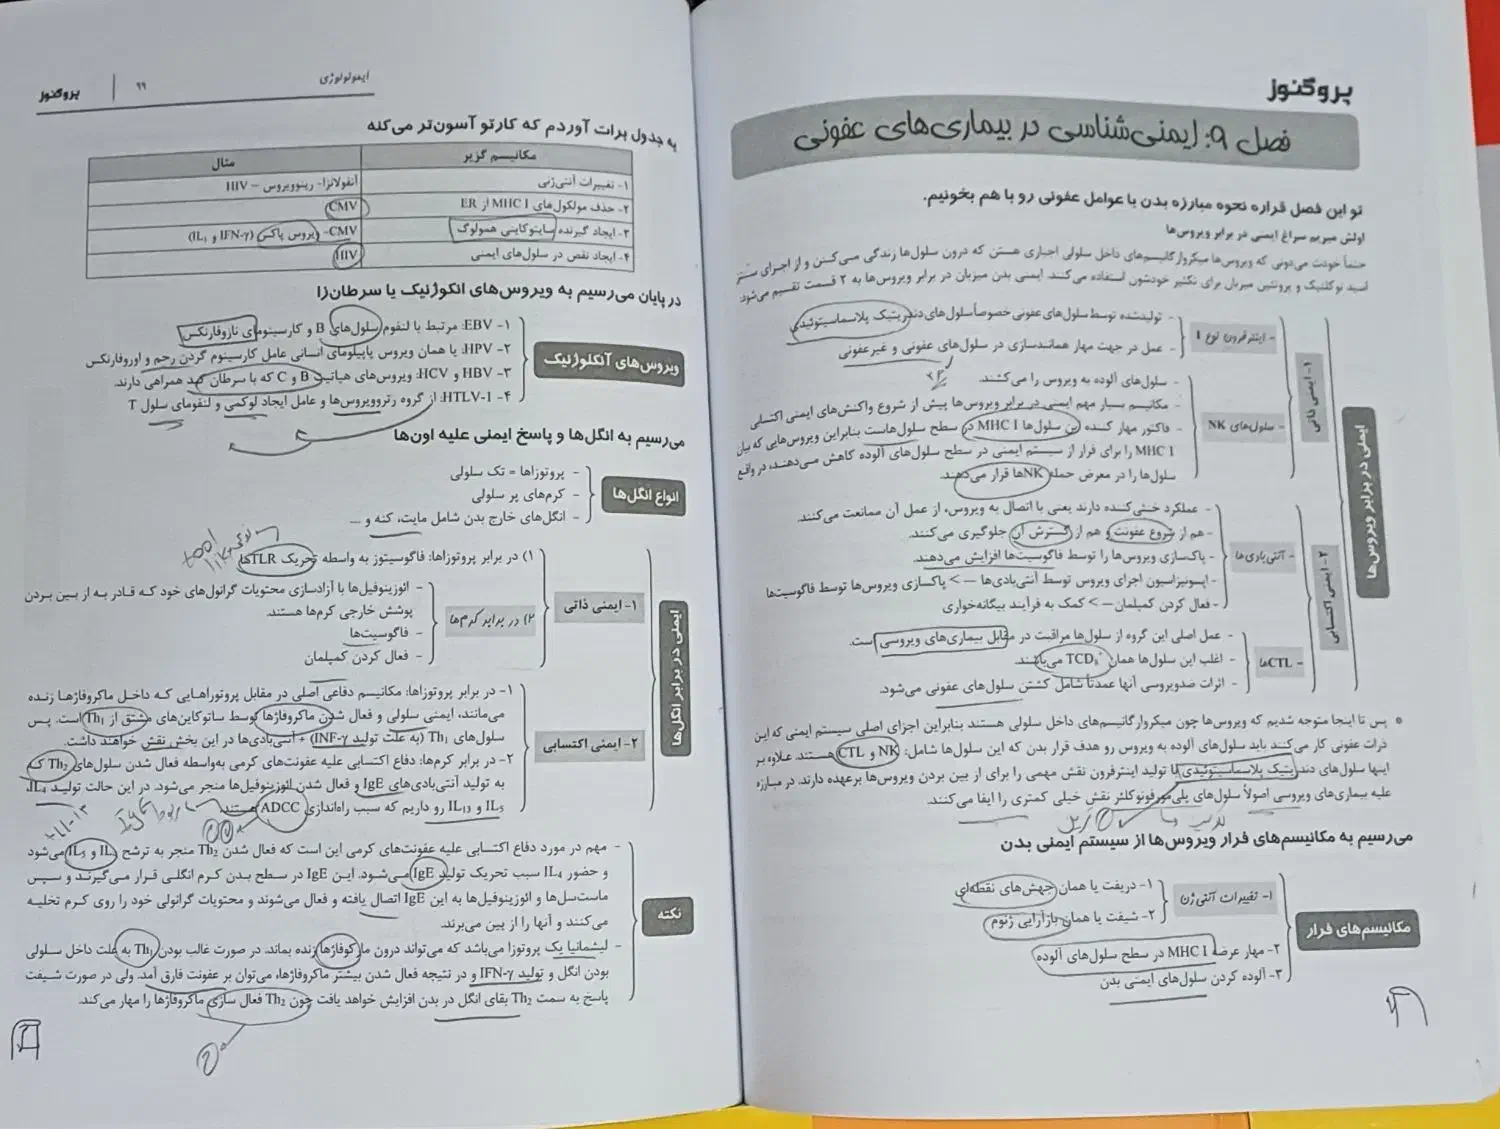 پروگنوز
فصل ۹: ایمنی‌شناسی در بیماری‌های عفونی
تو این فصل قراره نحوه مبارزه بدن با عوامل عفونی رو با هم بخونیم.
اولش میریم سراغ ایمنی در برابر ویروس‌ها
حتماً خودت می‌دونی که ویروس‌ها میکروارگانیسم‌های داخل سلولی اجباری هستن که درون سلول‌ها زندگی می‌کنن و از اجزای سنتز
اسید نوکلئیک و پروتئین میزبان برای تکثیر خودشون استفاده می‌کنند. ایمنی بدن میزبان در برابر ویروس‌ها به ۲ قسمت تقسیم می‌شود:
ایمنی در برابر ویروس‌ها
۱- ایمنی ذاتی
- اینترفرون نوع I
- تولیدشده توسط سلول‌های عفونی خصوصاً سلول‌های دندریتیک پلاسماسیتوئیدی
- عمل در جهت مهار همانندسازی در سلول‌های عفونی و غیرعفونی
- سلول‌های NK
- سلول‌های آلوده به ویروس را می‌کشند.
- مکانیسم بسیار مهم ایمنی در برابر ویروس‌ها پیش از شروع واکنش‌های ایمنی اکتسابی
- فاکتور مهار کننده این سلول‌ها MHC I در سطح سلول‌هاست بنابراین ویروس‌هایی که بیان
MHC I را برای فرار از سیستم ایمنی در سطح سلول‌های آلوده کاهش می‌دهند، در واقع
سلول‌ها را در معرض حمله NKها قرار می‌دهند.
۲- ایمنی اکتسابی
- آنتی‌بادی‌ها
- عملکرد خنثی‌کننده دارند یعنی با اتصال به ویروس، از عمل آن ممانعت می‌کنند.
- هم از شروع عفونت و هم از گسترش آن جلوگیری می‌کنند.
- پاکسازی ویروس‌ها را توسط فاگوسیت‌ها افزایش می‌دهند.
- اپسونیزاسیون اجزای ویروس توسط آنتی‌بادی‌ها —> پاکسازی ویروس‌ها توسط فاگوسیت‌ها
- فعال کردن کمپلمان —> کمک به فرآیند بیگانه‌خواری
- CTLها
- عمل اصلی این گروه از سلول‌ها مراقبت در مقابل بیماری‌های ویروسی است.
- اغلب این سلول‌ها همان TCD8+ می‌باشند.
- اثرات ضدویروسی آنها عمدتاً شامل کشتن سلول‌های عفونی می‌شود.
پس تا اینجا متوجه شدیم که ویروس‌ها چون میکروارگانیسم‌های داخل سلولی هستند بنابراین اجزای اصلی سیستم ایمنی که این
ذرات عفونی کار می‌کند باید سلول‌های آلوده به ویروس رو هدف قرار بدن که این سلول‌ها شامل: NK و CTL هستند. علاوه بر
اینها سلول‌های دندریتیک پلاسماسیتوئیدی با تولید اینترفرون نقش مهمی را برای از بین بردن ویروس‌ها برعهده دارند. در مبارزه
علیه بیماری‌های ویروسی اصولاً سلول‌های پلی‌مورفونوکلئر نقش خیلی کمتری را ایفا می‌کنند.
می‌رسیم به مکانیسم‌های فرار ویروس‌ها از سیستم ایمنی بدن
مکانیسم‌های فرار
۱- تغییرات آنتی‌ژن
۱- دریفت یا همان جهش‌های نقطه‌ای
۲- شیفت یا همان بازآرایی ژنوم
۲- مهار عرضه MHC I در سطح سلول‌های آلوده
۳- آلوده کردن سلول‌های ایمنی بدن
ایمونولوژی
۹۹
پروگنوز
یه جدول برات آوردم که کارتو آسون‌تر می‌کنه
مکانیسم گریز مثال
۱- تغییرات آنتی‌ژنی آنفولانزا- رینوویروس – HIV
۲- حذف مولکول‌های MHC I از ER CMV
۳- ایجاد گیرنده سایتوکاینی همولوگ CMV- ویروس پاکس (IFN-γ و IL1)
۴- ایجاد نقص در سلول‌های ایمنی HIV
در پایان می‌رسیم به ویروس‌های انکوژنیک یا سرطان‌زا
ویروس‌های آنکلوژنیک
۱- EBV: مرتبط با لنفوم سلول‌های B و کارسینومای نازوفارنکس
۲- HPV: یا همان ویروس پاپیلومای انسانی عامل کارسینوم گردن رحم و اوروفارنکس
۳- HBV و HCV: ویروس‌های هپاتیت B و C که با سرطان کبد همراهی دارند.
۴- HTLV-1: از گروه رتروویروس‌ها و عامل ایجاد لوکمی و لنفومای سلول T
می‌رسیم به انگل‌ها و پاسخ ایمنی علیه اون‌ها
انواع انگل‌ها
- پروتوزاها = تک سلولی
- کرم‌های پر سلولی
- انگل‌های خارج بدن شامل مایت، کنه و ...
toll
like
ایمنی در برابر انگل‌ها
۱- ایمنی ذاتی
۱) در برابر پروتوزاها: فاگوسیتوز به واسطه تحریک TLRها
۲) در برابر کرم‌ها
- ائوزینوفیل‌ها با آزادسازی محتویات گرانول‌های خود که قادر به از بین بردن
پوشش خارجی کرم‌ها هستند.
- فاگوسیت‌ها
- فعال کردن کمپلمان
۲- ایمنی اکتسابی
۱- در برابر پروتوزاها: مکانیسم دفاعی اصلی در مقابل پروتوزاهایی که داخل ماکروفاژها زنده
می‌مانند، ایمنی سلولی و فعال شدن ماکروفاژها توسط ساتوکاین‌های مشتق از Th1 است. پس
سلول‌های Th1 (به علت تولید INF-γ) + آنتی‌بادی‌ها در این بخش نقش خواهند داشت.
۲- در برابر کرم‌ها: دفاع اکتسابی علیه عفونت‌های کرمی به‌واسطه فعال شدن سلول‌های Th2 که
به تولید آنتی‌بادی‌های IgE و فعال شدن ائوزینوفیل‌ها منجر می‌شود. در این حالت تولید IL4،
IL5 و IL13 رو داریم که سبب راه‌اندازی ADCC هستند.
نکته
- مهم در مورد دفاع اکتسابی علیه عفونت‌های کرمی این است که فعال شدن Th2 منجر به ترشح IL4 و IL5 می‌شود
و حضور IL4 سبب تحریک تولید IgE می‌شود. این IgE در سطح بدن کرم انگلی قرار می‌گیرند و سپس
ماست‌سل‌ها و ائوزینوفیل‌ها به این IgE اتصال یافته و فعال می‌شوند و محتویات گرانولی خود را روی کرم تخلیه
می‌کنند و آنها را از بین می‌برند.
- لیشمانیا یک پروتوزا می‌باشد که می‌تواند درون ماکروفاژها زنده بماند. در صورت غالب بودن Th1 به علت داخل سلولی
بودن انگل و تولید IFN-γ و در نتیجه فعال شدن بیشتر ماکروفاژها، می‌توان بر عفونت فارق آمد. ولی در صورت شیفت
پاسخ به سمت Th2 بقای انگل در بدن افزایش خواهد یافت چون Th2 فعال سازی ماکروفاژها را مهار می‌کند.